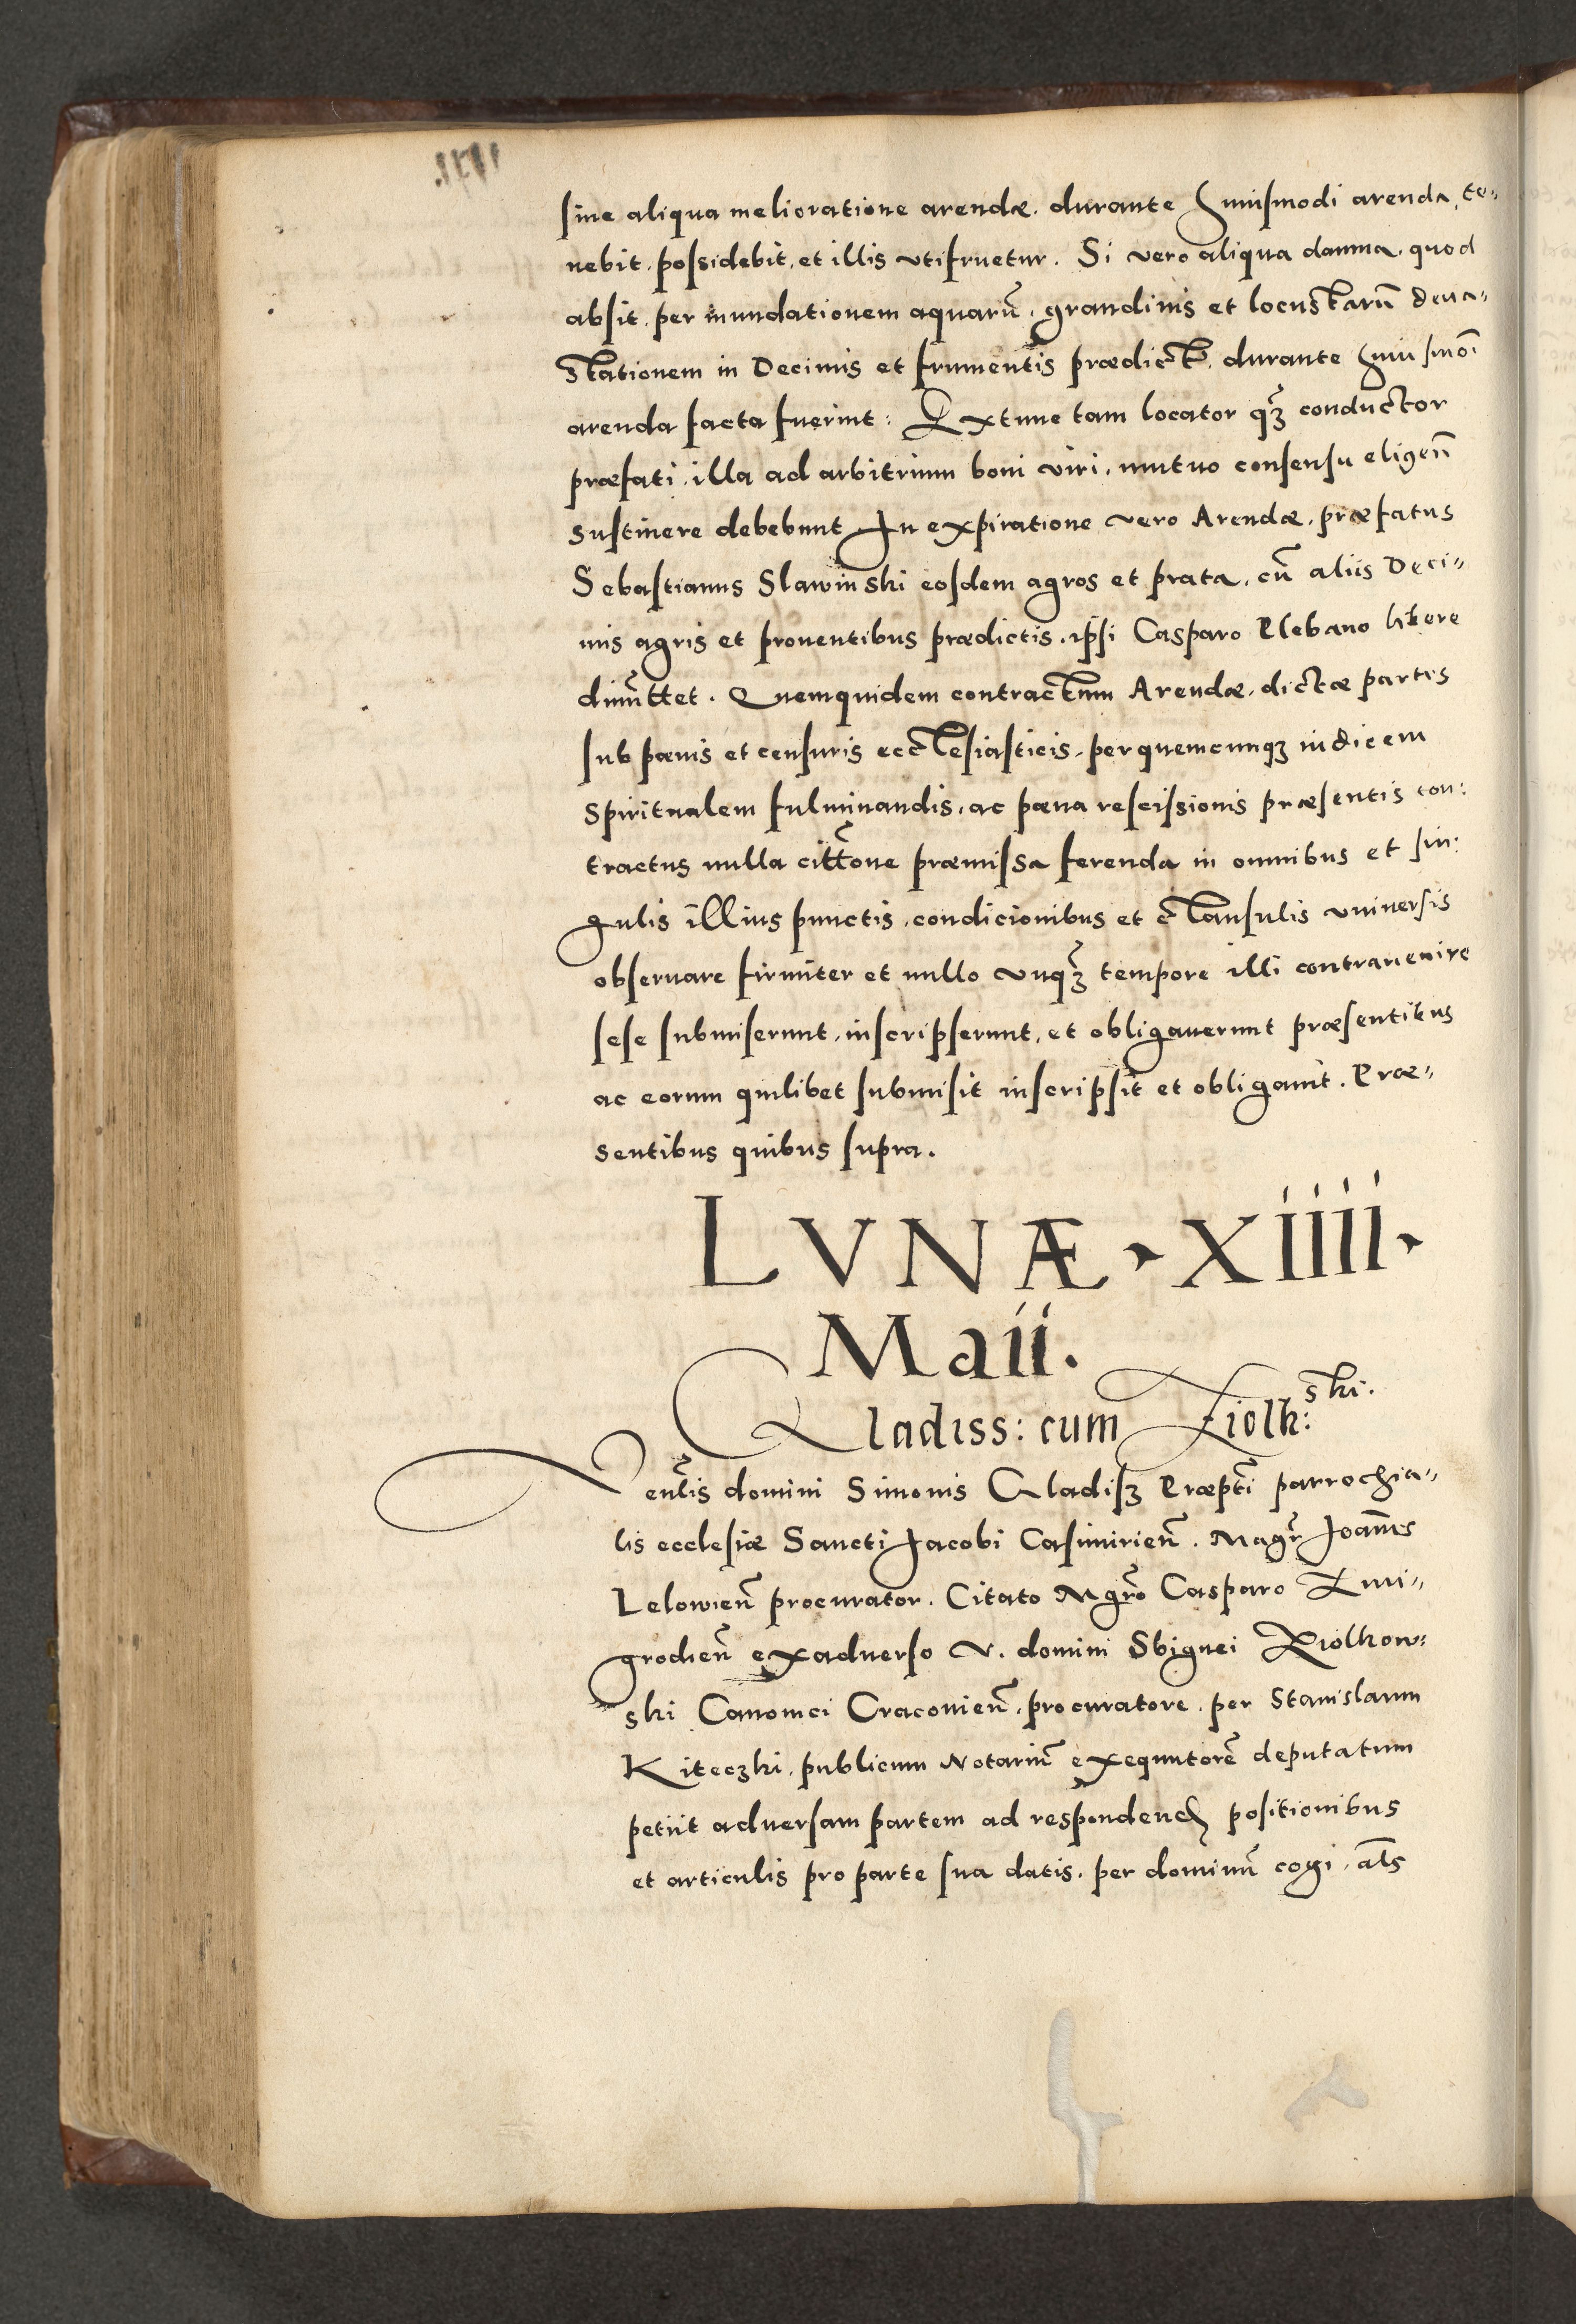 sine aliqua melioratione arendæ. durante huiusmodi arenda, te„
nebit, possidebit, et illis vtifruetur. Si vero aliqua damna, quod
absit, per inundationem aquarũ, grandinis et locustarũ deua„
stationem in Decimis et frumentis prædict̃, durante huiusmõi
arenda facta fuerint: Extunc tam locator q̃ʒ conductor
præfati, illa ad arbitrium boni viri, mutuo consensu eligeñ
sustinere debebunt. In expiratione vero Arendæ, præfatus
Sebastianus Slawinski eosdem agros et prata, cũ aliis Deci„
mis agris et prouentibus prædictis, ipsi Casparo Plebano libere
dimittet. Quemquidem contractum Arendæ, dictæ partes
sub pœnis et censuris ecclesiasticis, per quemcunqʒ iudicem
spiritualem fulminandis, ac pœna rescissionis præsentis con:
tractus nulla citt̃one præmissa ferenda in omnibus et sin:
gulis illius punctis, condicionibus et clausulis vniuersis
obseruare firmiter et nullo vnq̃ʒ tempore illi contrauenire
sese submiserunt, inscripserunt, et obligauerunt præsentibus
ac eorum quilibet submisit inscripsit et obligauit. Præ„
sentibus quibus supra.
LVNÆ · XIIII ·
Maii.
Gladiss: cum Ziolk:ski.
Veñlis domini Simonis Gladisʒ Præpt̃i parrochia„
lis ecclesiæ Sancti Jacobi Casimirieñ. Magr̃ Joañes
Lelowieñ procurator. Citato Mgr̃o Casparo Zmi„
grodieñ exaduerso V. domini Sbignei Ziolkow:
ski Canonici Cracouieñ, procuratore, per Stanislaum
Kiteczki, publicum Notariũ exequutorẽ deputatum
petiit aduersam partem ad respondend̃ positionibus
et articulis pro parte sua datis, per dominũ cogi, al̃s